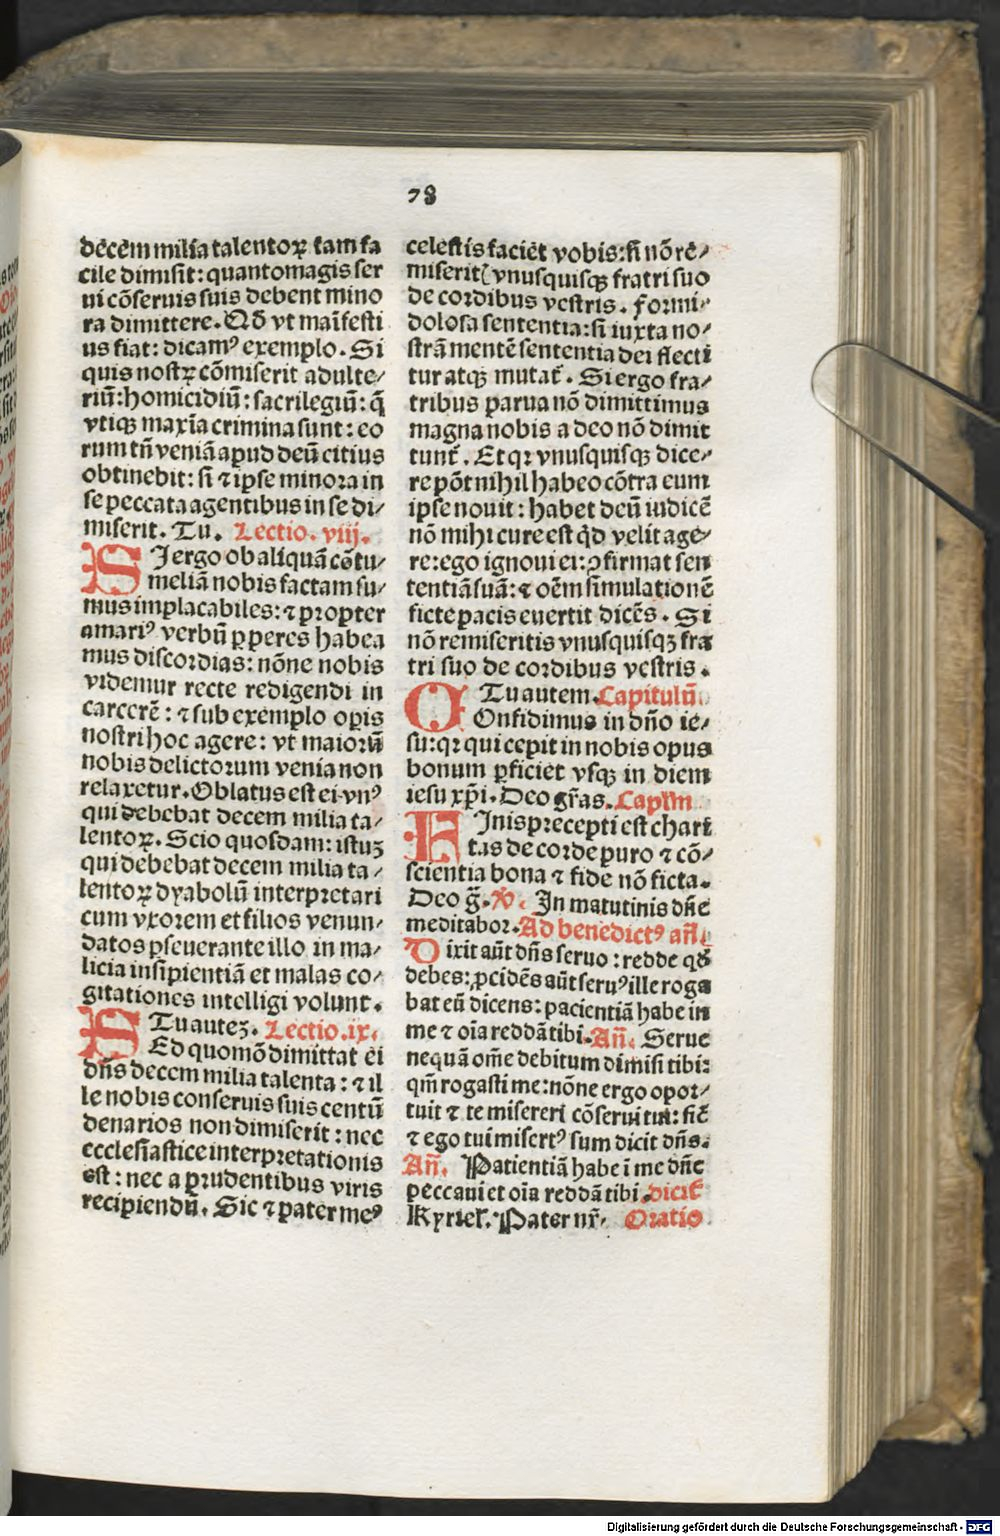 78
decem milia talentoꝝ tam fa
cile dimisit: quantomagis ser
ui cōseruis suis debent mino
ra dimittere. Qd̄ vt maīfesti
us fiat: dicamꝰ exemplo. Si
quis nostꝝ cōmiserit adulte⸗
riū: homicidiū: sacrilegiū: q̄
vtiqꝫ maxīa crimina sunt: eo
rum tn̄ veniā apud deū citius
obtinebit: si ⁊ ipse minora in
se peccata agentibus in se di⸗
miserit. Tu. Lectio. viij.
SI ergo ob aliquā cōtu⸗
meliā nobis factam su⸗
mus implacabiles: ⁊ propter
amarꝰ verbū ꝑpes habea
mus discordias: nōne nobis
videmur recte redigendi in
carcerē: ⁊ sub exemplo oꝑis
nostri hoc agere: vt maiorū
nobis delictorum venia non
relaxetur. Oblatus est ei vnꝰ
qui debebat decem milia ta⸗
lentoꝝ. Scio quosdam: istuꝫ
qui debebat decem milia ta⸗
lentoꝝ dyabolū interpretari
cum vxorem et filios venun⸗
datos ꝑseuerante illo in ma⸗
licia insipientiā et malas co⸗
gitationes intelligi volunt.
Tu auteꝫ. Lectio. ix.
SEd quomō dimittat ei
dn̄s decem milia talenta: ⁊ il
le nobis conseruis suis centū
denarios non dimiserit: nec
ecclesiastice interpretationis
est: nec a prudentibus viris
recipiendū. Sic ⁊ pater meꝰ
celestis faciet vobis: si nō re⸗
miserit vnusquisqꝫ fratri suo
de cordibus vestris. Formi⸗
dolosa sententia: si iuxta no⸗
strā mentē sententia dei flecti
tur atqꝫ mutat̄. Si ergo fra⸗
tribus parua nō dimittimus
magna nobis a deo nō dimit
tunt̄. Et qꝛ vnusquisqꝫ dice⸗
re pōt nihil habeo cōtra eum
ipse nouit: habet deū iudicē
nō mihi cure est qd̄ velit age⸗
re: ego ignoui ei: ꝯfirmat sen
tentiā suā: ⁊ oēm simulationē
ficte pacis euertit dicēs. Si
nō remiseritis vnusquisqꝫ fra
tri suo de cordibus vestris.
Tu autem. Capitulū.
COnfidimus in dn̄o ie⸗
su: qꝛ qui cepit in nobis opus
bonum ꝑficiet vsqꝫ in diem
iesu xp̄i. Deo gr̄as. Capl̄m
FInis precepti est chari
tas de corde puro ⁊ cō⸗
scientia bona ⁊ fide nō ficta.
Deo ḡ. V̄. In matutinis dn̄e
meditabor. Ad benedictꝰ añ.
Dixit aūt dn̄s seruo: redde qd̄
debes: ꝓcidēs aūt seruꝰ ille roga
bat eū dicens: pacientiā habe in
me ⁊ oīa reddā tibi. Añ. Serue
nequā om̄e debitum dimisi tibi:
qm̄ rogasti me: nōne ergo opor⸗
tuit ⁊ te misereri cōserui tui: sic̄
⁊ ego tui misertꝰ sum dicit dn̄s.
Añ. Patientiā habe ī me dn̄e
peccaui et oīa reddā tibi. dicit̄
Kyriel̄. Pater nr̄. Oratio
Digitalisierung gefördert durch die Deutsche Forschungsgemeinschaft - DFG